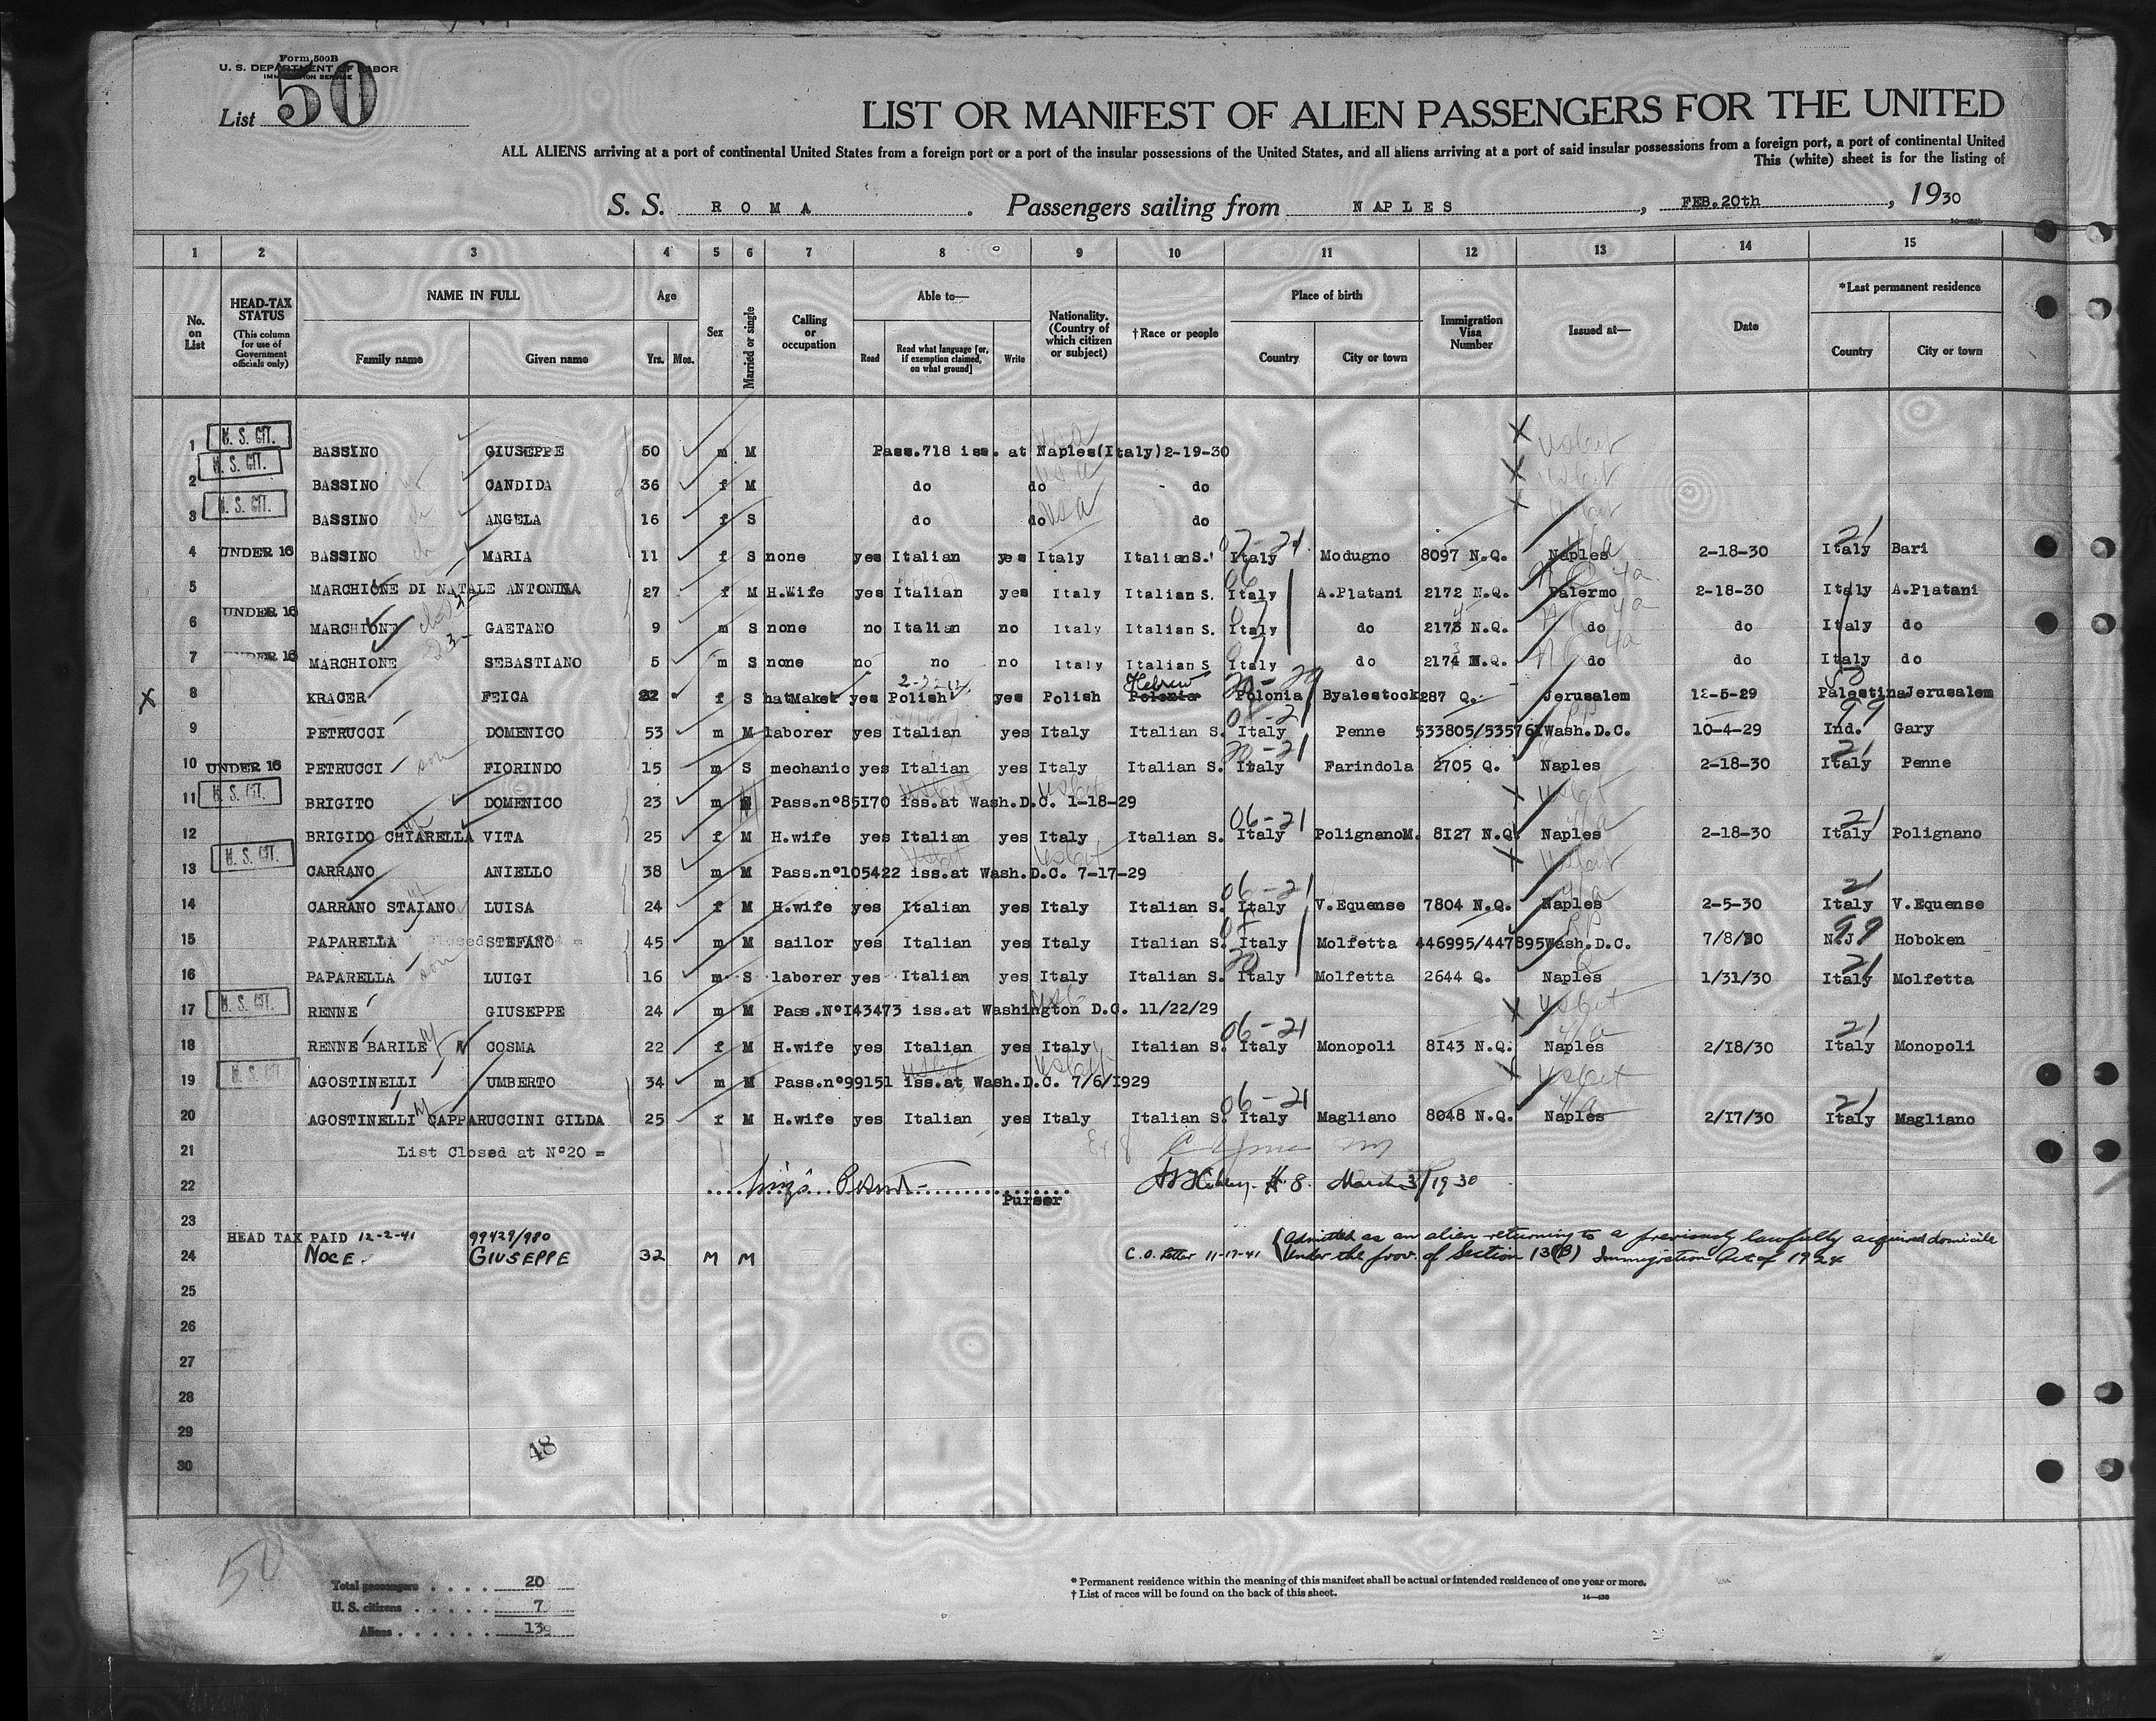 Form 500B
U. S. DEPARTMENT OF LABOR
IMMIGRATION SERVICE
List 50
LIST OR MANIFEST OF ALIEN PASSENGERS FOR THE UNITED
ALL ALIENS arriving at a port of continental United States from a foreign port or a port of the insular possessions of the United States, and all aliens arriving at a port of said insular possessions from a foreign port, a port of continental United
This (white) sheet is for the listing of
S. S. ROMA . Passengers sailing from NAPLES , FEB.20th , 1930
1 2 3 4 5 6 7 8 9 10 11 12 13 14 15
No. on List
HEAD-TAX STATUS (This column for use of Government officials only)
NAME IN FULL Family name Given name
Age Yrs. Mos.
Sex
Married or single
Calling or occupation
Able to— Read Read what language [or, if exemption claimed, on what ground] Write
Nationality. (Country of which citizen or subject)
†Race or people
Place of birth Country City or town
Immigration Visa Number
Issued at—
Date
*Last permanent residence Country City or town
1 U. S. CIT. BASSINO GIUSEPPE 50 m M Pass.718 iss. at Naples(Italy)2-19-30
2 U. S. CIT. BASSINO CANDIDA 36 f M do do do
3 U. S. CIT. BASSINO ANGELA 16 f S do do do
4 UNDER 16 BASSINO MARIA 11 f S none yes Italian yes Italy Italian S. Italy Modugno 8097 N.Q. Naples 2-18-30 Italy Bari
5 MARCHIONE DI NATALE ANTONINA 27 f M H.Wife yes Italian yes Italy Italian S. Italy A.Platani 2172 N.Q. Palermo 2-18-30 Italy A.Platani
6 UNDER 16 MARCHIONE GAETANO 9 m S none no Italian no Italy Italian S. Italy do 2174 N.Q. do do Italy do
7 UNDER 16 MARCHIONE SEBASTIANO 5 m S none no no no Italy Italian S Italy do 2173 N.Q. do do Italy do
X 8 KRACER FEIGA 22 f S hatMaker yes Polish yes Polish Hebrew Polonia Byalestock 287 Q. Jerusalem 12-5-29 Palestina Jerusalem
9 PETRUCCI DOMENICO 53 m M laborer yes Italian yes Italy Italian S. Italy Penne 533805/535761 Wash.D.C. 10-4-29 Ind. Gary
10 UNDER 16 PETRUCCI son FIORINDO 15 m S mechanic yes Italian yes Italy Italian S. Italy Farindola 2705 Q. Naples 2-18-30 Italy Penne
11 U. S. CIT. BRIGITO DOMENICO 23 m M Pass.n°85170 iss.at Wash.D.C. 1-18-29
12 BRIGIDO CHIARELLA VITA 25 f M H.wife yes Italian yes Italy Italian S. Italy PolignanoM. 8127 N.Q. Naples 2-18-30 Italy Polignano
13 U. S. CIT. CARRANO ANIELLO 38 m M Pass.n°105422 iss.at Wash.D.C. 7-17-29
14 CARRANO STAIANO LUISA 24 f M H.wife yes Italian yes Italy Italian S. Italy V.Equense 7804 N.Q. Naples 2-5-30 Italy V.Equense
15 PAPARELLA STEFANO 45 m M sailor yes Italian yes Italy Italian S. Italy Molfetta 446995/447895 Wash.D.C. 7/8/30 N.J. Hoboken
16 PAPARELLA son LUIGI 16 m S laborer yes Italian yes Italy Italian S. Italy Molfetta 2644 Q. Naples 1/31/30 Italy Molfetta
17 U. S. CIT. RENNE GIUSEPPE 24 m M Pass.N°143473 iss.at Washington D.C. 11/22/29
18 RENNE BARILE COSMA 22 f M H.wife yes Italian yes Italy Italian S. Italy Monopoli 8143 N.Q. Naples 2/18/30 Italy Monopoli
19 U. S. CIT. AGOSTINELLI UMBERTO 34 m M Pass.n°99151 iss.at Wash.D.C. 7/6/1929
20 AGOSTINELLI CAPPARUCCINI GILDA 25 f M H.wife yes Italian yes Italy Italian S. Italy Magliano 8048 N.Q. Naples 2/17/30 Italy Magliano
21 List Closed at N°20 =
22 Purser #8. March 3/1930
23
HEAD TAX PAID 12-2-41 99429/980 (Admitted as an alien returning to a previously lawfully acquired domicile
24 NOCE. GIUSEPPE 32 M M C.O. letter 11-17-41 Under the prov. of Section 13(B) Immigration Act of 1924
25
26
27
28
29
48
30
50
Total passengers 20
U. S. citizens 7
Aliens 13
* Permanent residence within the meaning of this manifest shall be actual or intended residence of one year or more.
† List of races will be found on the back of this sheet.